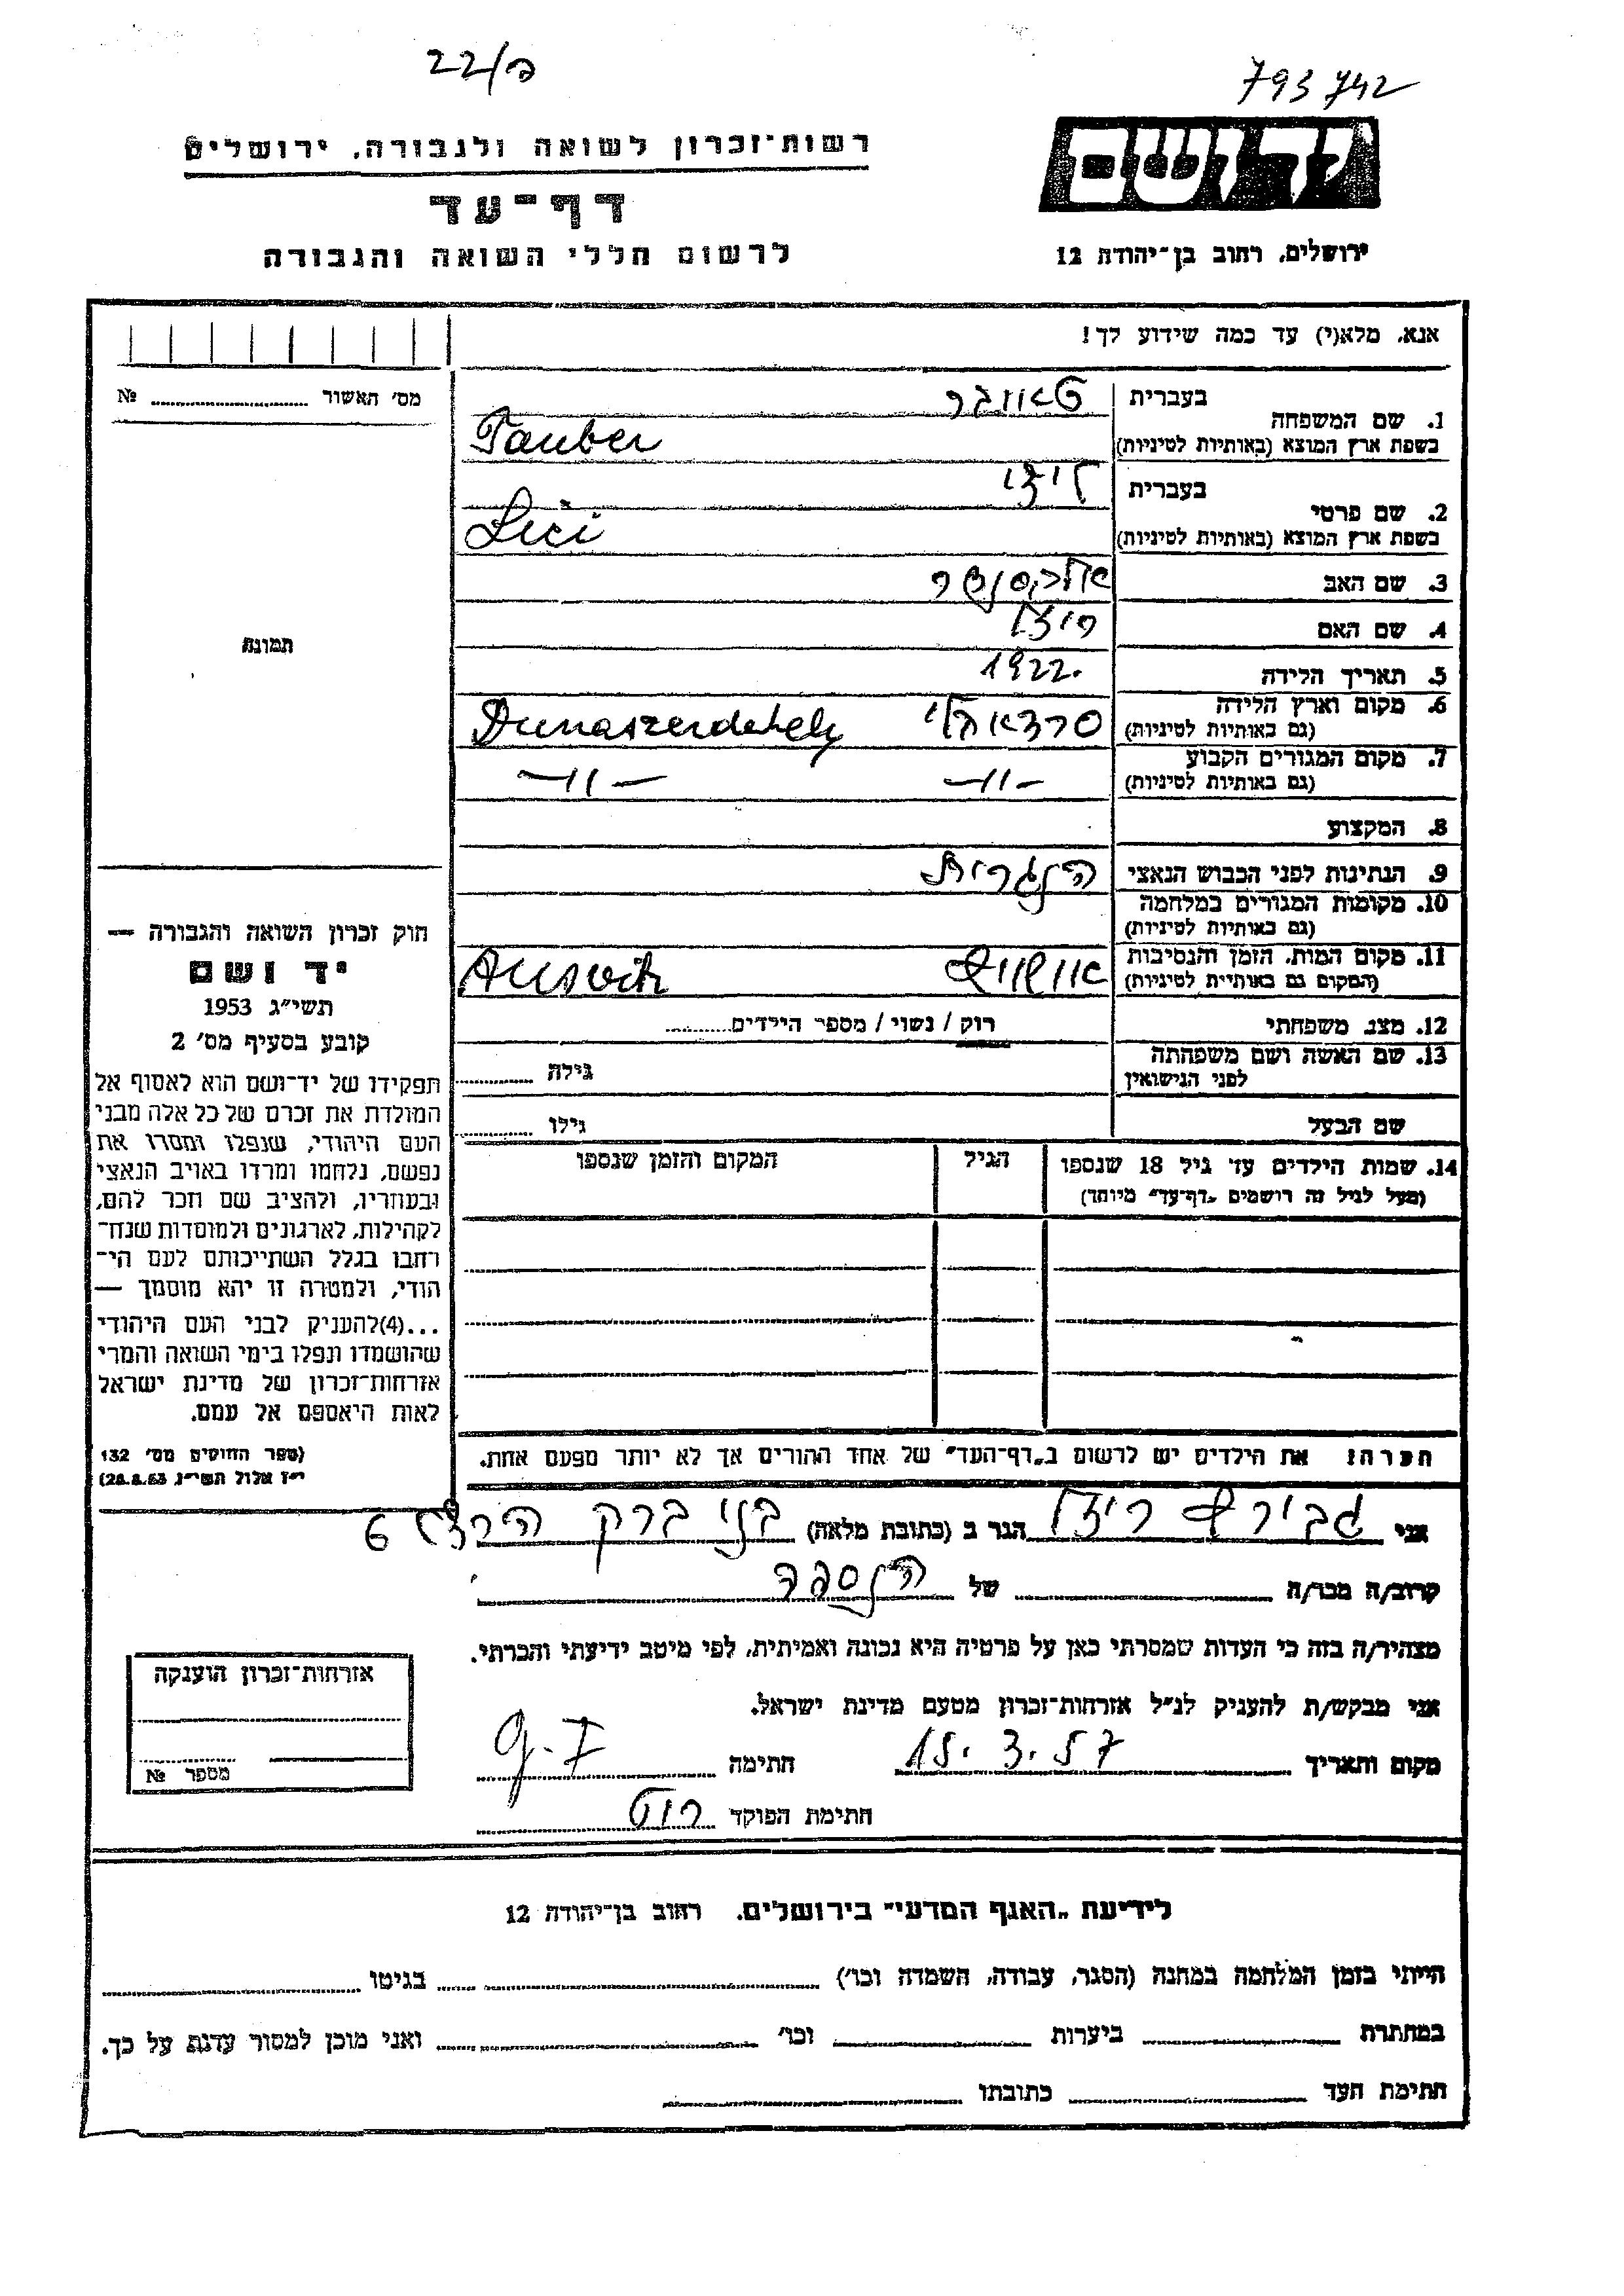 22/פ
793742
רשות־זכרון לשואה ולגבורה, ירושלים
יד ושם
דף־עד
לרשום חללי השואה והגבורה
ירושלים, רחוב בן־יהודה 12
אנא, מלא(י) עד כמה שידוע לך!
מס' האשור № 
1. שם המשפחה בעברית טאובר
בשפת ארץ המוצא (באותיות לטיניות) Tauber
2. שם פרטי בעברית ליצי
בשפת ארץ המוצא (באותיות לטיניות) Lici
3. שם האב אלכסנדר
4. שם האם
5. תאריך הלידה 1922.
6. מקום וארץ הלידה (גם באותיות לטיניות) סרדאהלי Dunaszerdahely
7. מקום המגורים הקבוע (גם באותיות לטיניות) —〃— —〃—
8. המקצוע
9. הנתינות לפני הכבוש הנאצי הונגרית
10. מקומות המגורים במלחמה (גם באותיות לטיניות)
11. מקום המות, הזמן והנסיבות (המקום גם באותיות לטיניות) אושוויץ Ausvitz
12. מצב משפחתי רוק / נשוי / מספר הילדים
13. שם האשה ושם משפחתה לפני הנישואין גילה
שם הבעל גילו
14. שמות הילדים עד גיל 18 שנספו הגיל המקום והזמן שנספו
(מעל לגיל זה רושמים „דף־עד" מיוחד)
הערה: את הילדים יש לרשום ב„דף־העד" של אחד ההורים אך לא יותר מפעם אחת.
תמונה
חוק זכרון השואה והגבורה —
יד ושם
תשי"ג 1953
קובע בסעיף מס' 2
תפקידו של יד־ושם הוא לאסוף אל
המולדת את זכרם של כל אלה מבני
העם היהודי, שנפלו ומסרו את
נפשם, נלחמו ומרדו באויב הנאצי
ובעוזריו, ולהציב שם וזכר להם,
לקהילות, לארגונים ולמוסדות שנח־
רבו בגלל השתייכותם לעם הי־
הודי, ולמטרה זו יהא מוסמך —
...(4)להעניק לבני העם היהודי
שהושמדו ונפלו בימי השואה והמרי
אזרחות־זכרון של מדינת ישראל
לאות היאספם אל עמם.
(ספר החוקים מס' 132
י"ז אלול תשי"ג, 28.8.53)
אני הגר ב (כתובת מלאה) בני ברק הרצל 6
קרוב/ה מכר/ה של הנספה
מצהיר/ה בזה כי העדות שמסרתי כאן על פרטיה היא נכונה ואמיתית, לפי מיטב ידיעתי והכרתי.
אני מבקש/ת להעניק לנ"ל אזרחות־זכרון מטעם מדינת ישראל.
מקום ותאריך 15. 3. 57 חתימה
חתימת הפוקד רוט
אזרחות־זכרון הוענקה
מספר №
לידיעת „האגף המדעי" בירושלים, רחוב בן־יהודה 12
הייתי בזמן המלחמה במחנה (הסגר, עבודה, השמדה וכו') בגיטו
במחתרת ביערות וכו' ואני מוכן למסור עדות על כך.
חתימת העד כתובתו